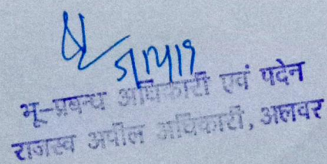 5/12/19
भू-प्रबन्ध अधिकारी एवं पदेन
राजस्व अपील अधिकारी, अलवर